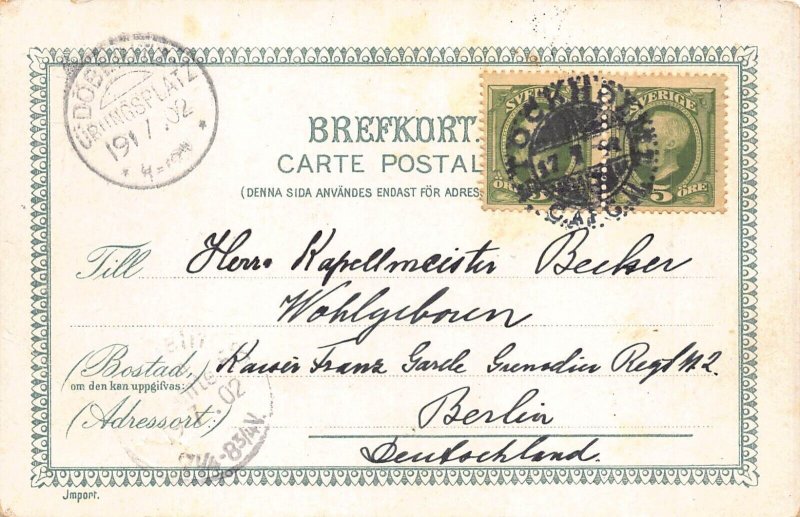 DÖBERITZ
ÜBUNGSPLATZ
19 7 .02
* 4-
BREFKORT.
CARTE POSTAL
(DENNA SIDA ANVÄNDES ENDAST FÖR ADRES
SVERIGE
SVERIGE
ÖRE 5
5 ÖRE
STOCKHOLM
17 7
C.AFG.
Till Herr Kapellmeister Becker
Wohlgeboren
(Bostad, Kaiser Franz Garde Grenadier Regt No 2.
om den kan uppgifvas:
(Adressort:) Berlin
Deutschland.
.02
7½-8¾V.
Import.